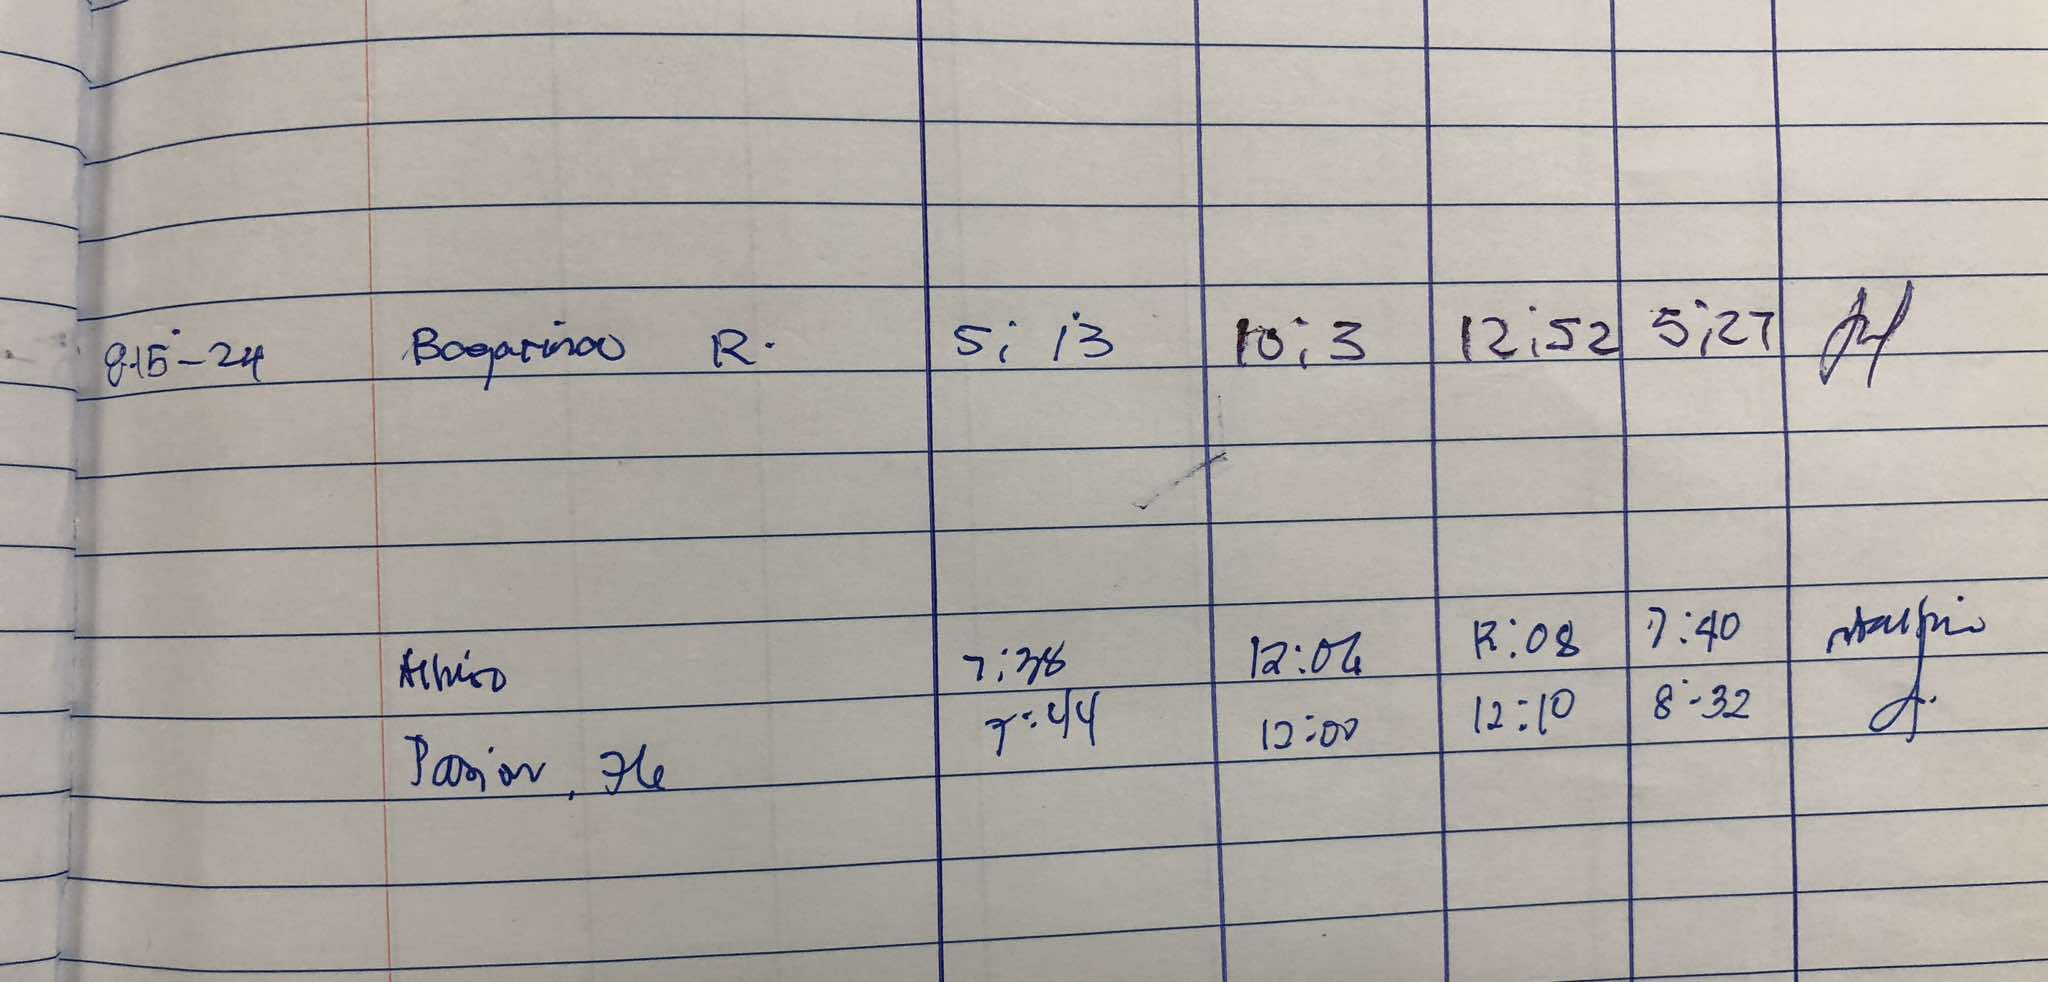 8-15-24 Bogarinao R. 5; 13 10;3 12;52 5;27
7:38 12:06 12:08 7:40
Pasion, 7:44 12:00 12:10 8:32